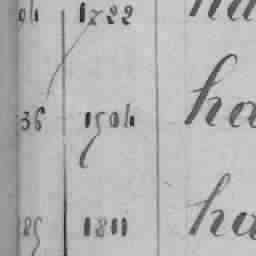 04 1722 ha
36 1504 ha
85 1811 ha